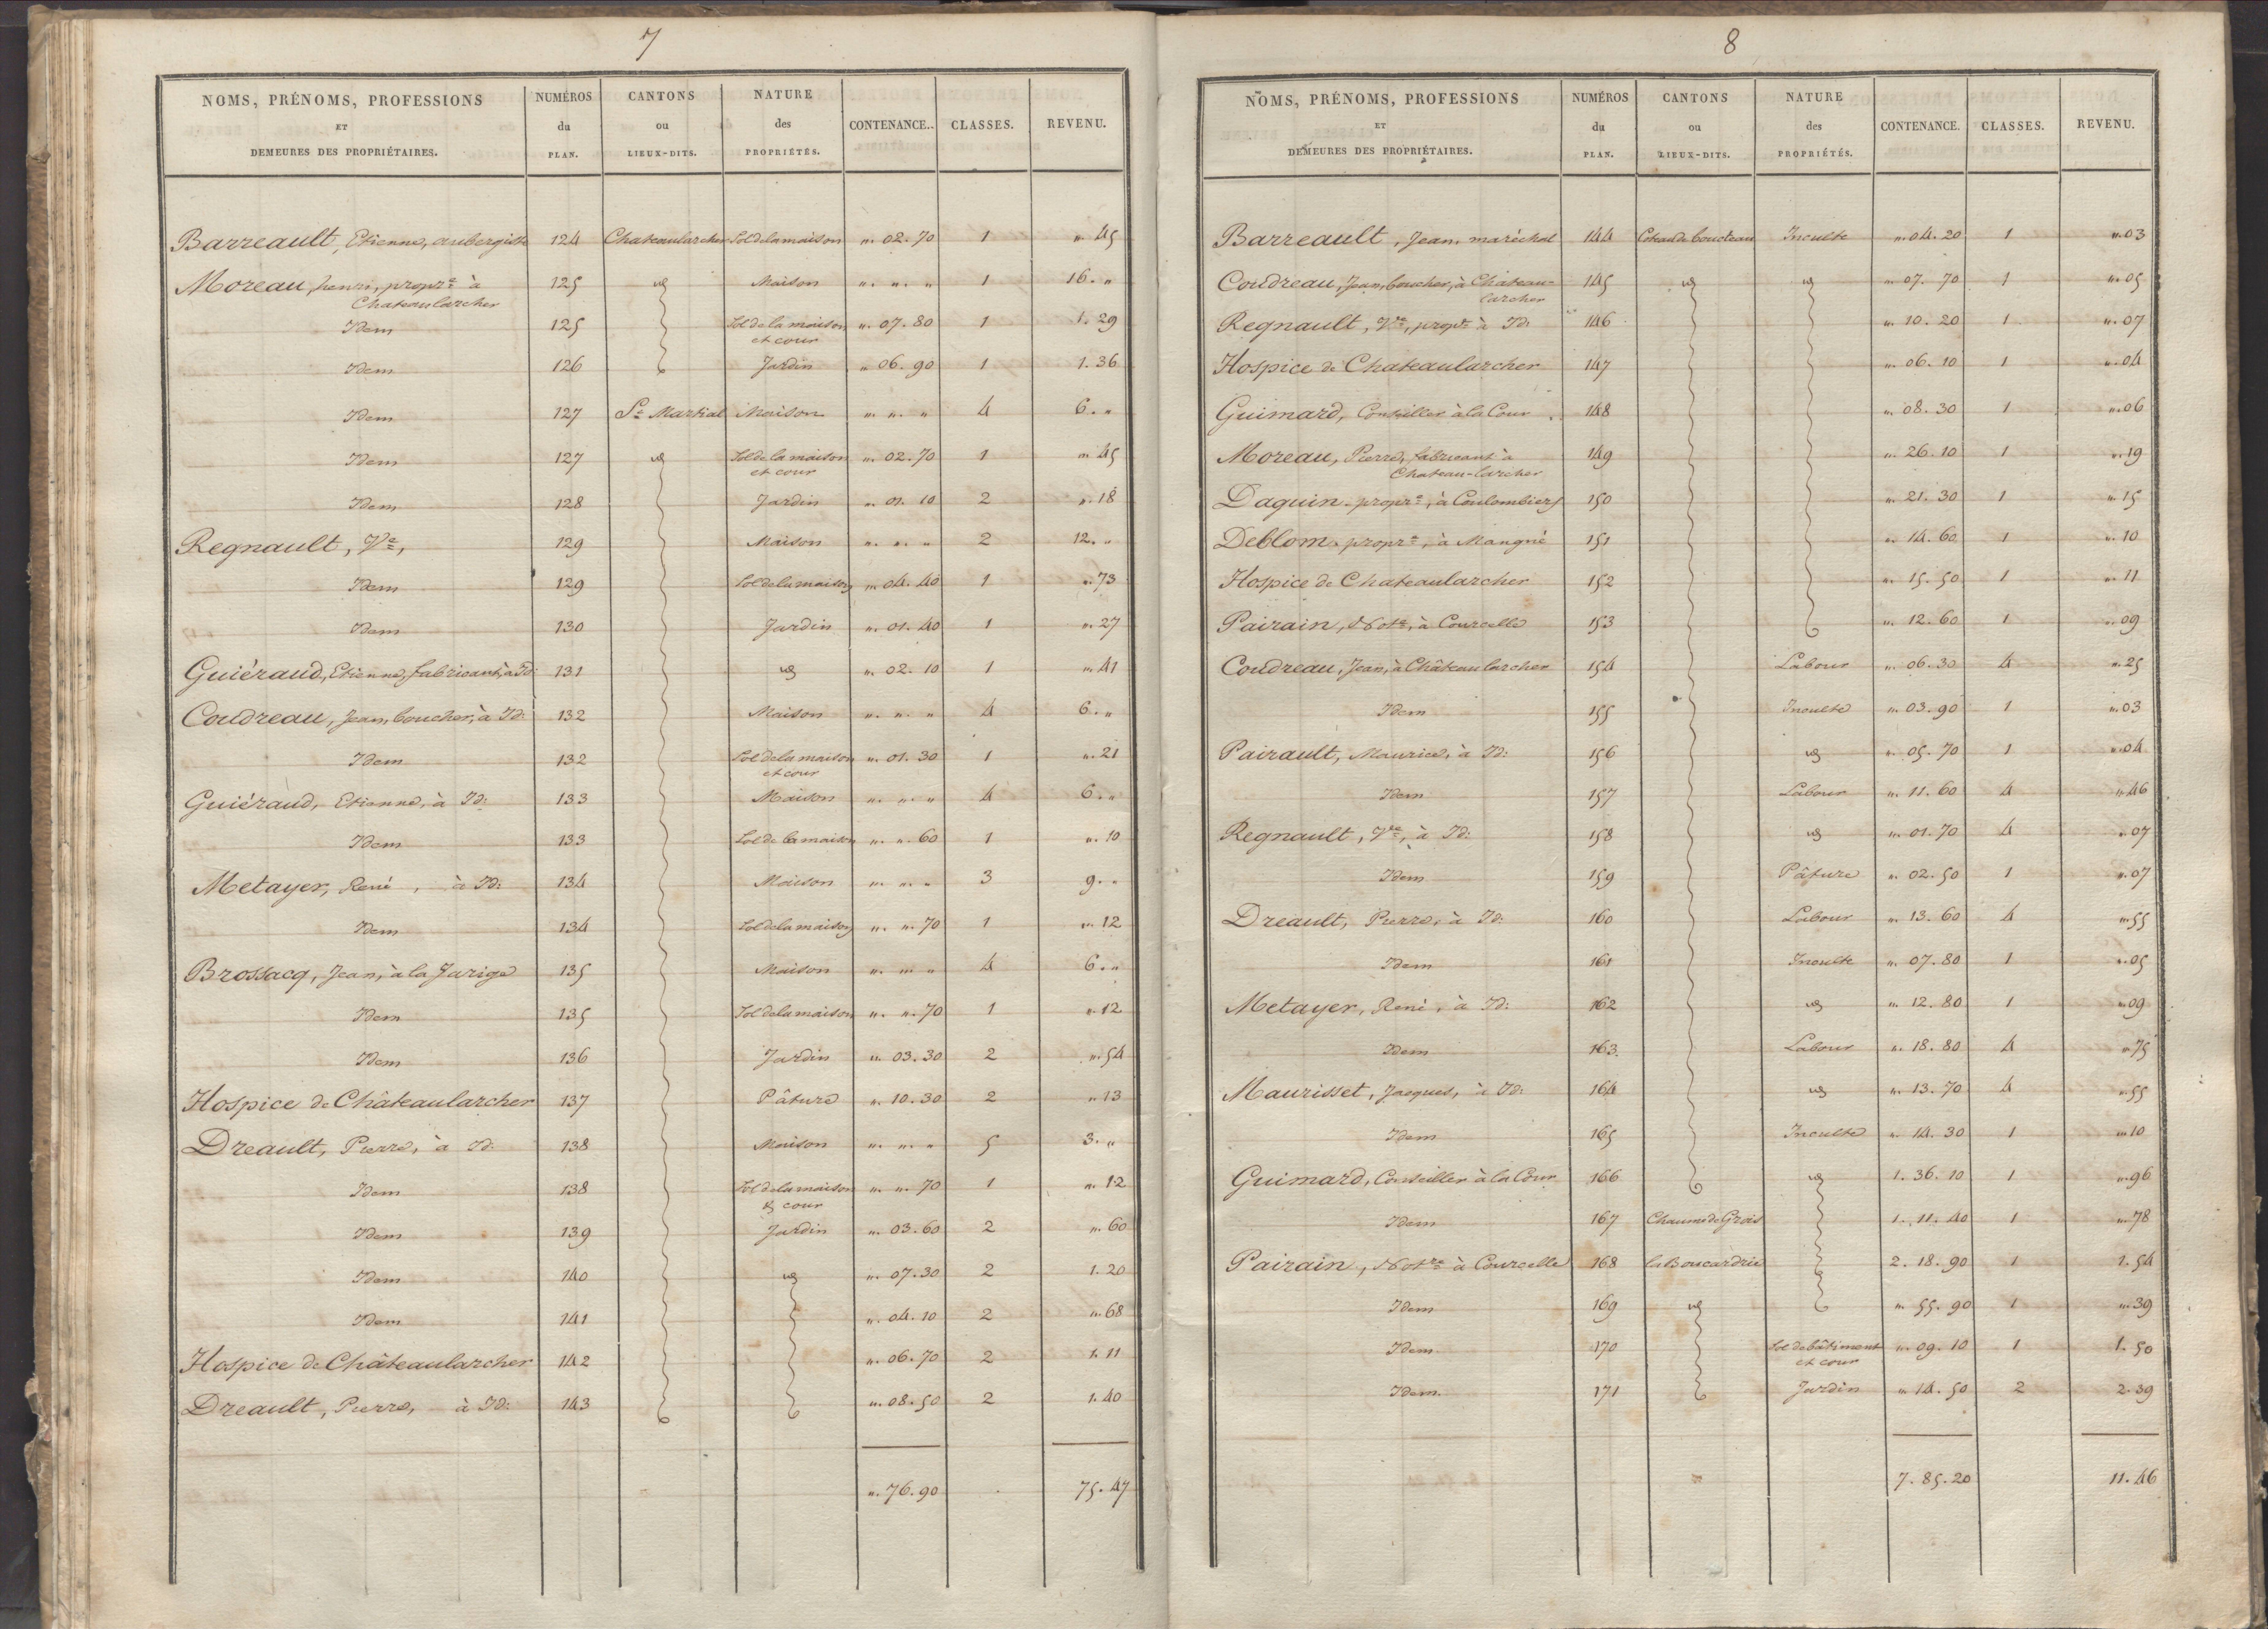 7
NOMS, PRÉNOMS, PROFESSIONS ET DEMEURES DES PROPRIÉTAIRES. NUMÉROS du PLAN. CANTONS ou LIEUX-DITS. NATURE des PROPRIÉTÉS. CONTENANCE. CLASSES. REVENU.
Barreault, Etienne, aubergiste 124 Chateaularcher Sol de la maison „. 02. 70 1 „. 45
Moreau, henri, propre à Chateaularcher 125 id Maison „. „. „ 1 16. „
Idem 125 Sol de la maison et cour „. 07. 80 1 1. 29
Idem 126 Jardin „. 06. 90 1 1. 36
Idem 127 St Martial Maison „. „. „ 4 6. „
Idem 127 id Sol de la maison et cour „. 02. 70 1 „. 45
Idem 128 Jardin „. 01. 10 2 „. 18
Regnault, Ve, 129 Maison „. „. „ 2 12. „
Idem 129 Sol de la maison „. 04. 40 1 „. 73
Idem 130 Jardin „. 01. 40 1 „. 27
Guiéraud, Etienne, fabricant, à Id: 131 id „. 02. 10 1 „. 41
Coudreau, Jean, boucher, à Id: 132 Maison „. „. „ 4 6. „
Idem 132 Sol de la maison et cour „. 01. 30 1 „. 21
Guiéraud, Etienne, à Id: 133 Maison „. „. „ 4 6. „
Idem 133 Sol de la maison „. „. 60 1 „. 10
Metayer, René, à Id: 134 Maison „. „. „ 3 9. „
Idem 134 Sol de la maison „. „. 70 1 „. 12
Brossacq, Jean, à la Jarige 135 Maison „. „. „ 4 6. „
Idem 135 Sol de la maison „. „. 70 1 „. 12
Idem 136 Jardin „. 03. 30 2 „. 54
Hospice de Châteaularcher 137 Pâture „. 10. 30 2 „. 13
Dreault, Pierre, à Id: 138 Maison „. „. „ 5 3. „
Idem 138 Sol de la maison & cour „. „. 70 1 „. 12
Idem 139 Jardin „. 03. 60 2 „. 60
Idem 140 id „. 07. 30 2 1. 20
Idem 141 „. 04. 10 2 „. 68
Hospice de Châteaularcher 142 „. 06. 70 2 1. 11
Dreault, Pierre, à Id: 143 „. 08. 50 2 1. 40
„. 76. 90 75. 47
8
NOMS, PRÉNOMS, PROFESSIONS ET DEMEURES DES PROPRIÉTAIRES. NUMÉROS du PLAN. CANTONS ou LIEUX-DITS. NATURE des PROPRIÉTÉS. CONTENANCE. CLASSES. REVENU.
Barreault, Jean, maréchal 144 Coteau de Inculte „. 04. 20 1 „. 03
Coudreau, Jean, boucher, à Château-larcher 145 id id „. 07. 70 1 „. 05
Regnault, Vve, propre à Id: 146 „. 10. 20 1 „. 07
Hospice de Chateaularcher 147 „. 06. 10 1 „. 04
Guimard, Conseiller à la Cour 148 „. 08. 30 1 „. 06
Moreau, Pierre, fabricant à Chateau-larcher 149 „. 26. 10 1 „. 19
Daquin, propre, à Coulombiers 150 „. 21. 30 1 „. 15
Deblom, propre, à Mangné 151 „. 14. 60 1 „. 10
Hospice de Chateaularcher 152 „. 15. 50 1 „. 11
Pairain, Notre, à Courcelle 153 „. 12. 60 1 „. 09
Coudreau, Jean, à Châteaularcher 154 Labour „. 06. 30 4 „. 25
Idem 155 Inculte „. 03. 90 1 „. 03
Pairault, Maurice, à Id: 156 id „. 05. 70 1 „. 04
Idem 157 Labour „. 11. 60 4 „. 46
Regnault, Vve, à Id: 158 id „. 01. 70 4 „. 07
Idem 159 Pâture „. 02. 50 1 „. 07
Dreault, Pierre, à Id: 160 Labour „. 13. 60 4 „. 55
Idem 161 Inculte „. 07. 80 1 „. 05
Metayer, René, à Id: 162 id „. 12. 80 1 „. 09
Idem 163 Labour „. 18. 80 4 „. 75
Maurisset, Jacques, à Id: 164 id „. 13. 70 4 „. 55
Idem 165 Inculte „. 14. 30 1 „. 10
Guimard, Conseiller à la Cour 166 id 1. 36. 10 1 „. 96
Idem 167 Chaume de Grois 1. 11. 40 1 „. 78
Pairain, Notre à Courcelle 168 la Boucardrie 2. 18. 90 1 1. 54
Idem 169 id „. 55. 90 1 „. 39
Idem 170 Sol de bâtiment et cour „. 09. 10 1 1. 50
Idem 171 Jardin „. 14. 50 2 2. 39
7. 85. 20 11. 46